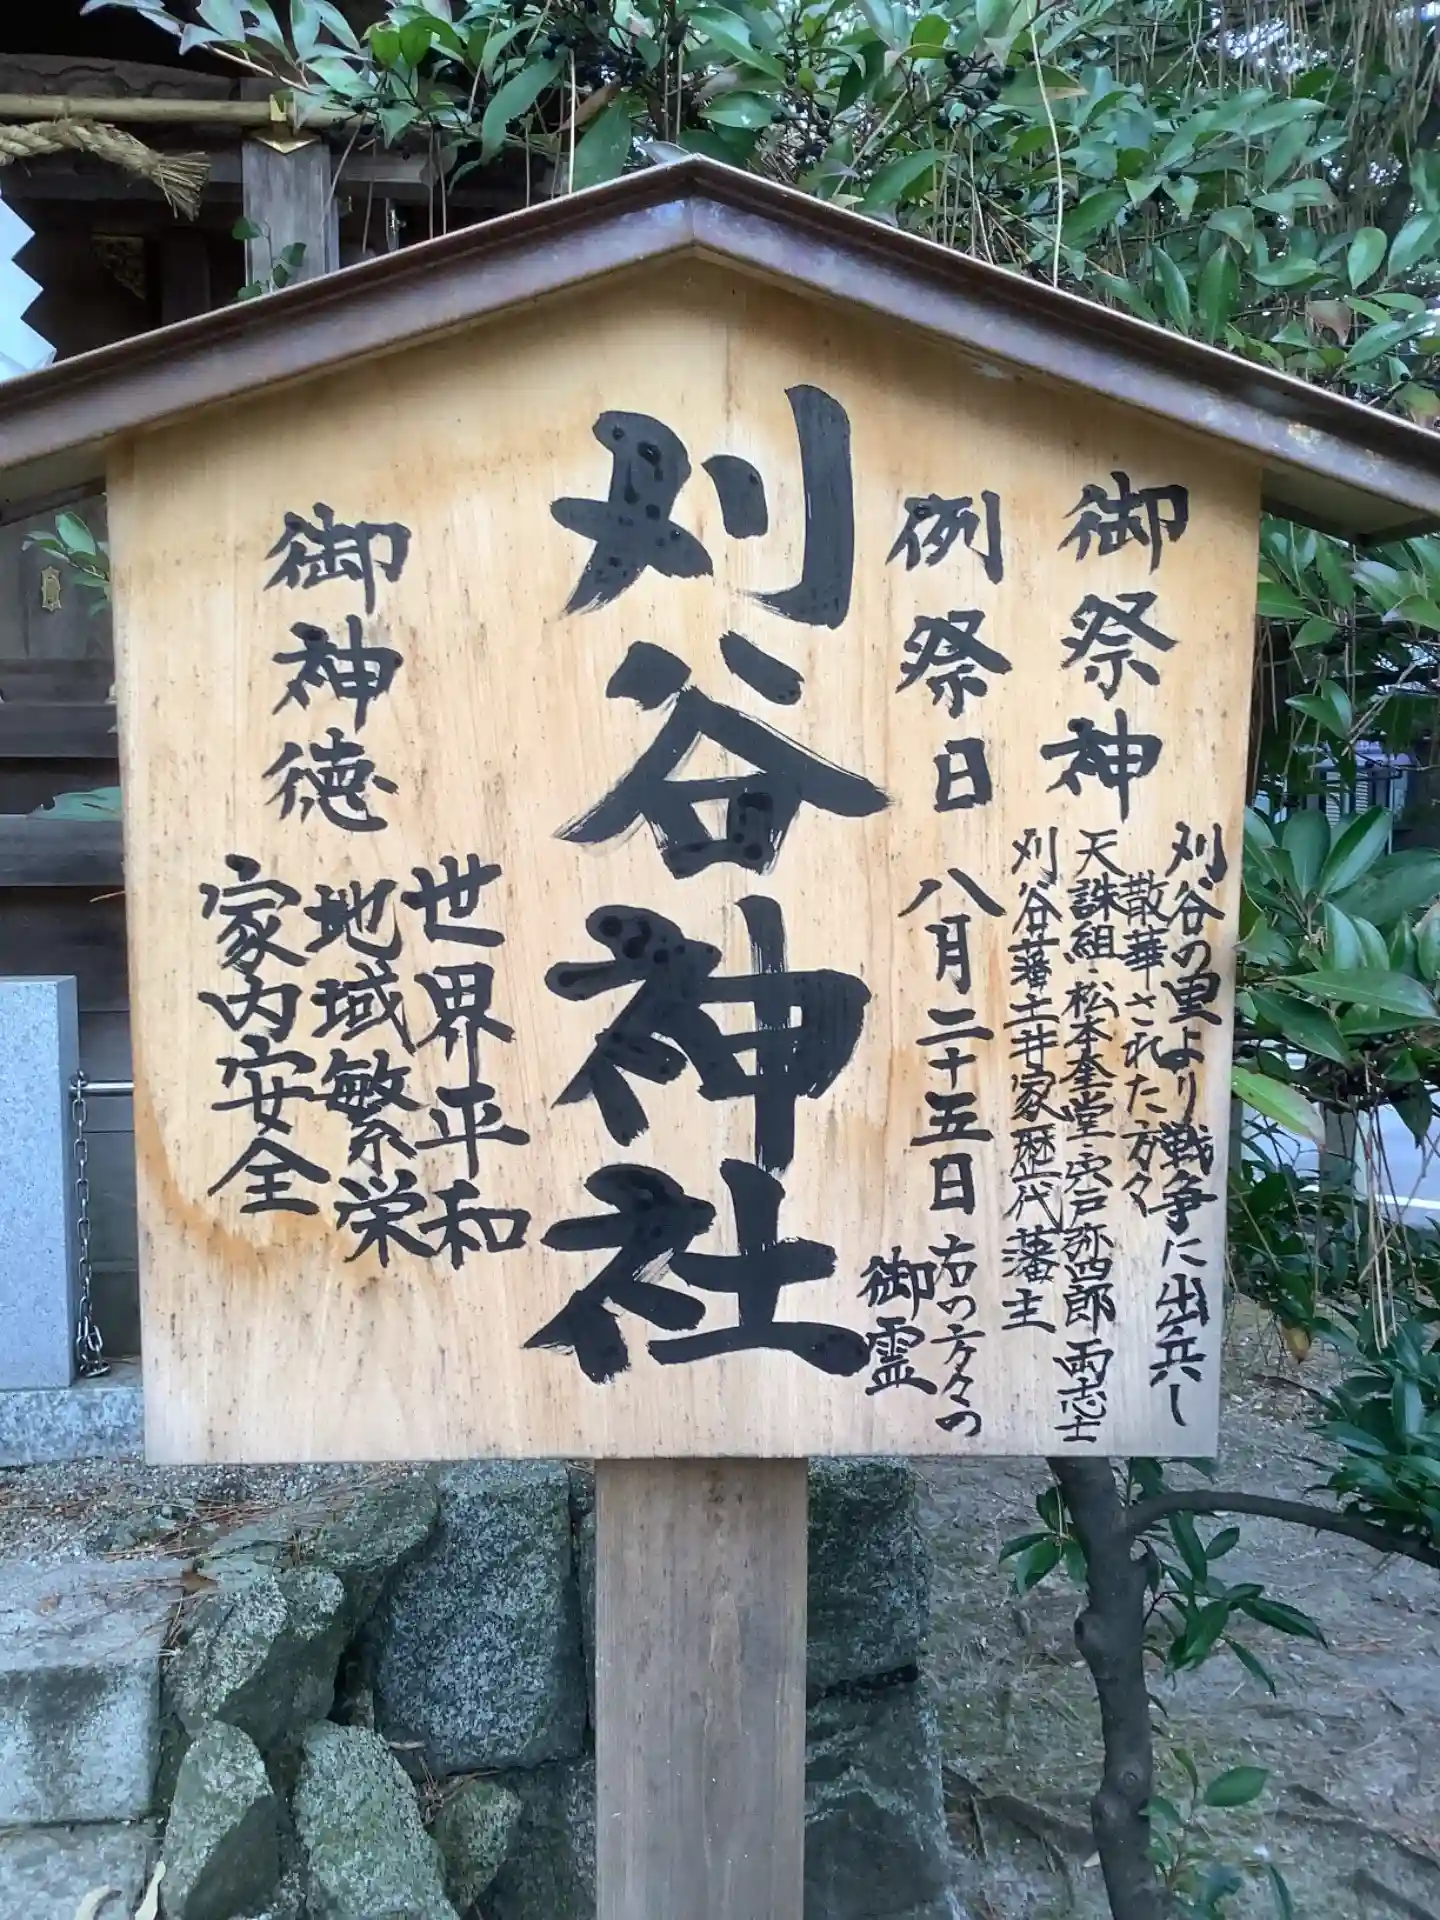 御祭神
刈谷の里より戦争に出兵し
散華された方々
天誅組・松本奎堂・宍戸弥四郎両志士
刈谷藩土井家歴代藩主
右の方々の
御霊
例祭日 八月二十五日
刈谷神社
御神徳
世界平和
地域繁栄
家内安全